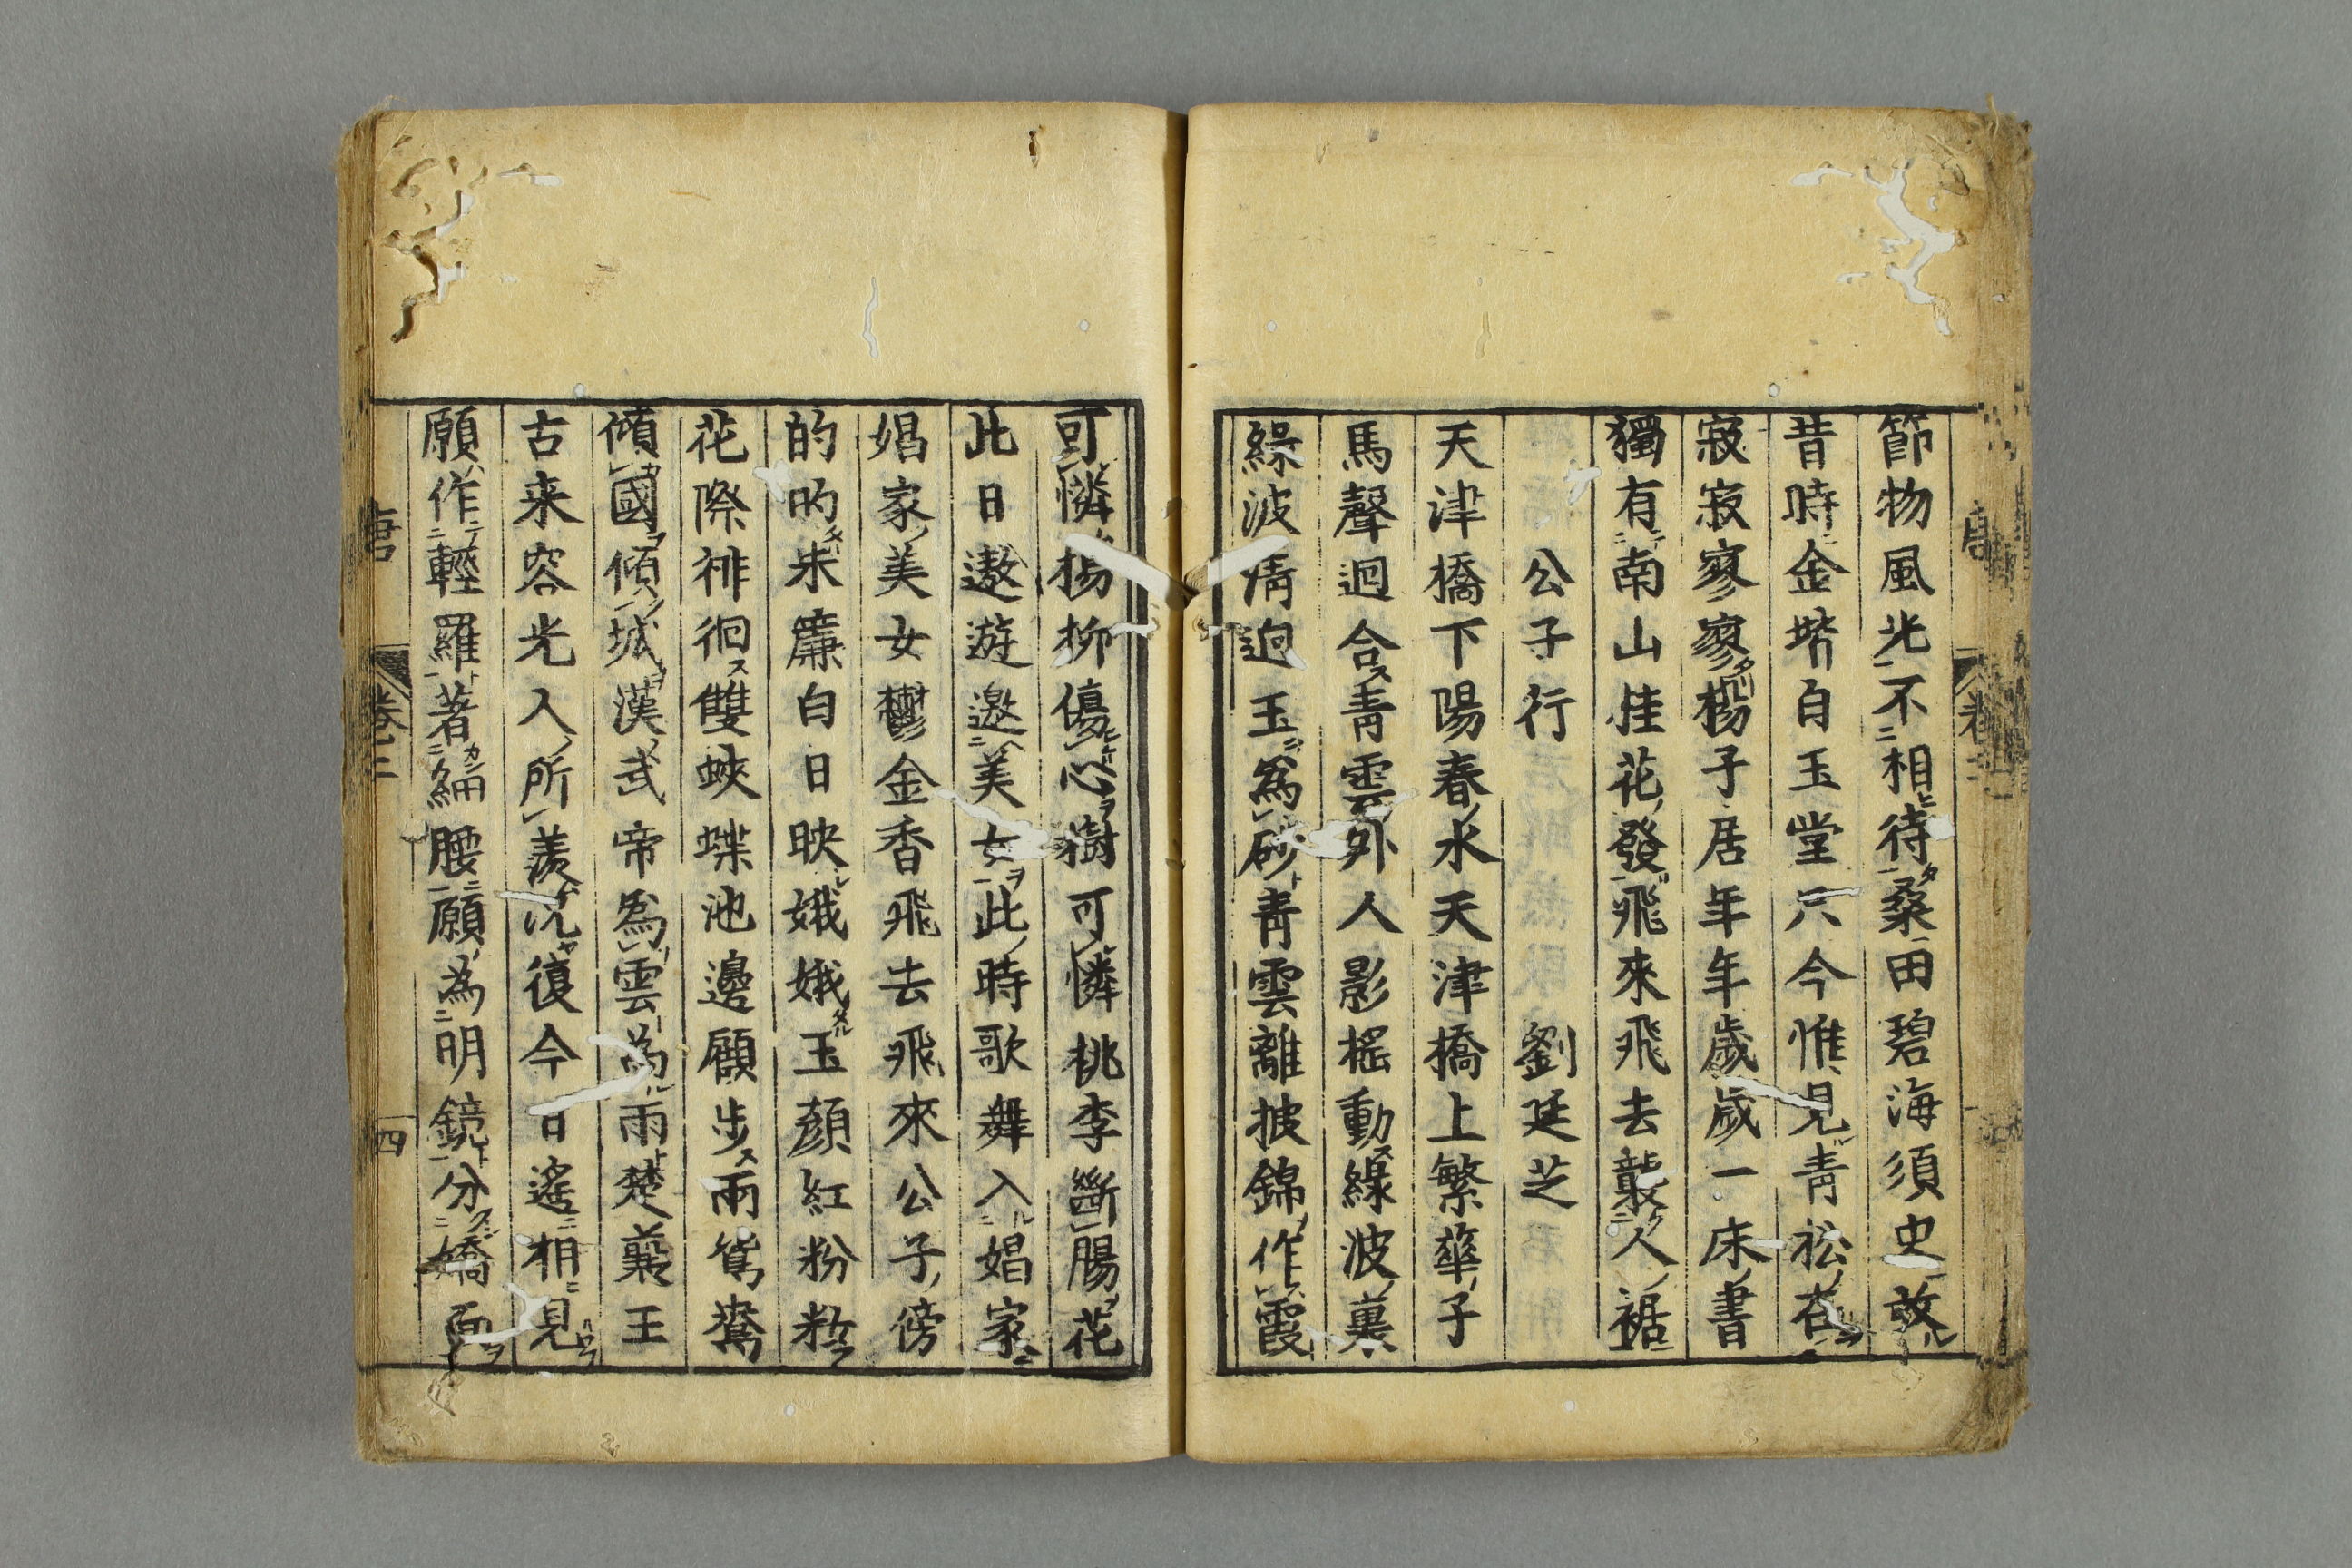 節物風光不相待桑田碧海須臾改
昔時金堦白玉堂只今惟見青松在
寂寂寥寥楊子居年年歲歲一床書
獨有南山桂花發飛來飛去襲人裾
公子行 劉廷芝
天津橋下陽春水天津橋上繁華子
馬聲迴合青雲外人影搖動綠波裏
綠波清迥玉為砂青雲離披錦作霞
可憐楊柳傷心樹可憐桃李斷腸花
此日遨遊邀美女此時歌舞入娼家
娼家美女鬱金香飛去飛來公子傍
的的朱簾白日映娥娥玉顏紅粉粧
花際徘徊雙蛺蝶池邊顧步兩鴛鴦
傾國傾城漢武帝為雲為雨楚襄王
古来容光入所羨況復今日遙相見
願作輕羅著細腰願為明鏡分嬌面
唐 卷二 四